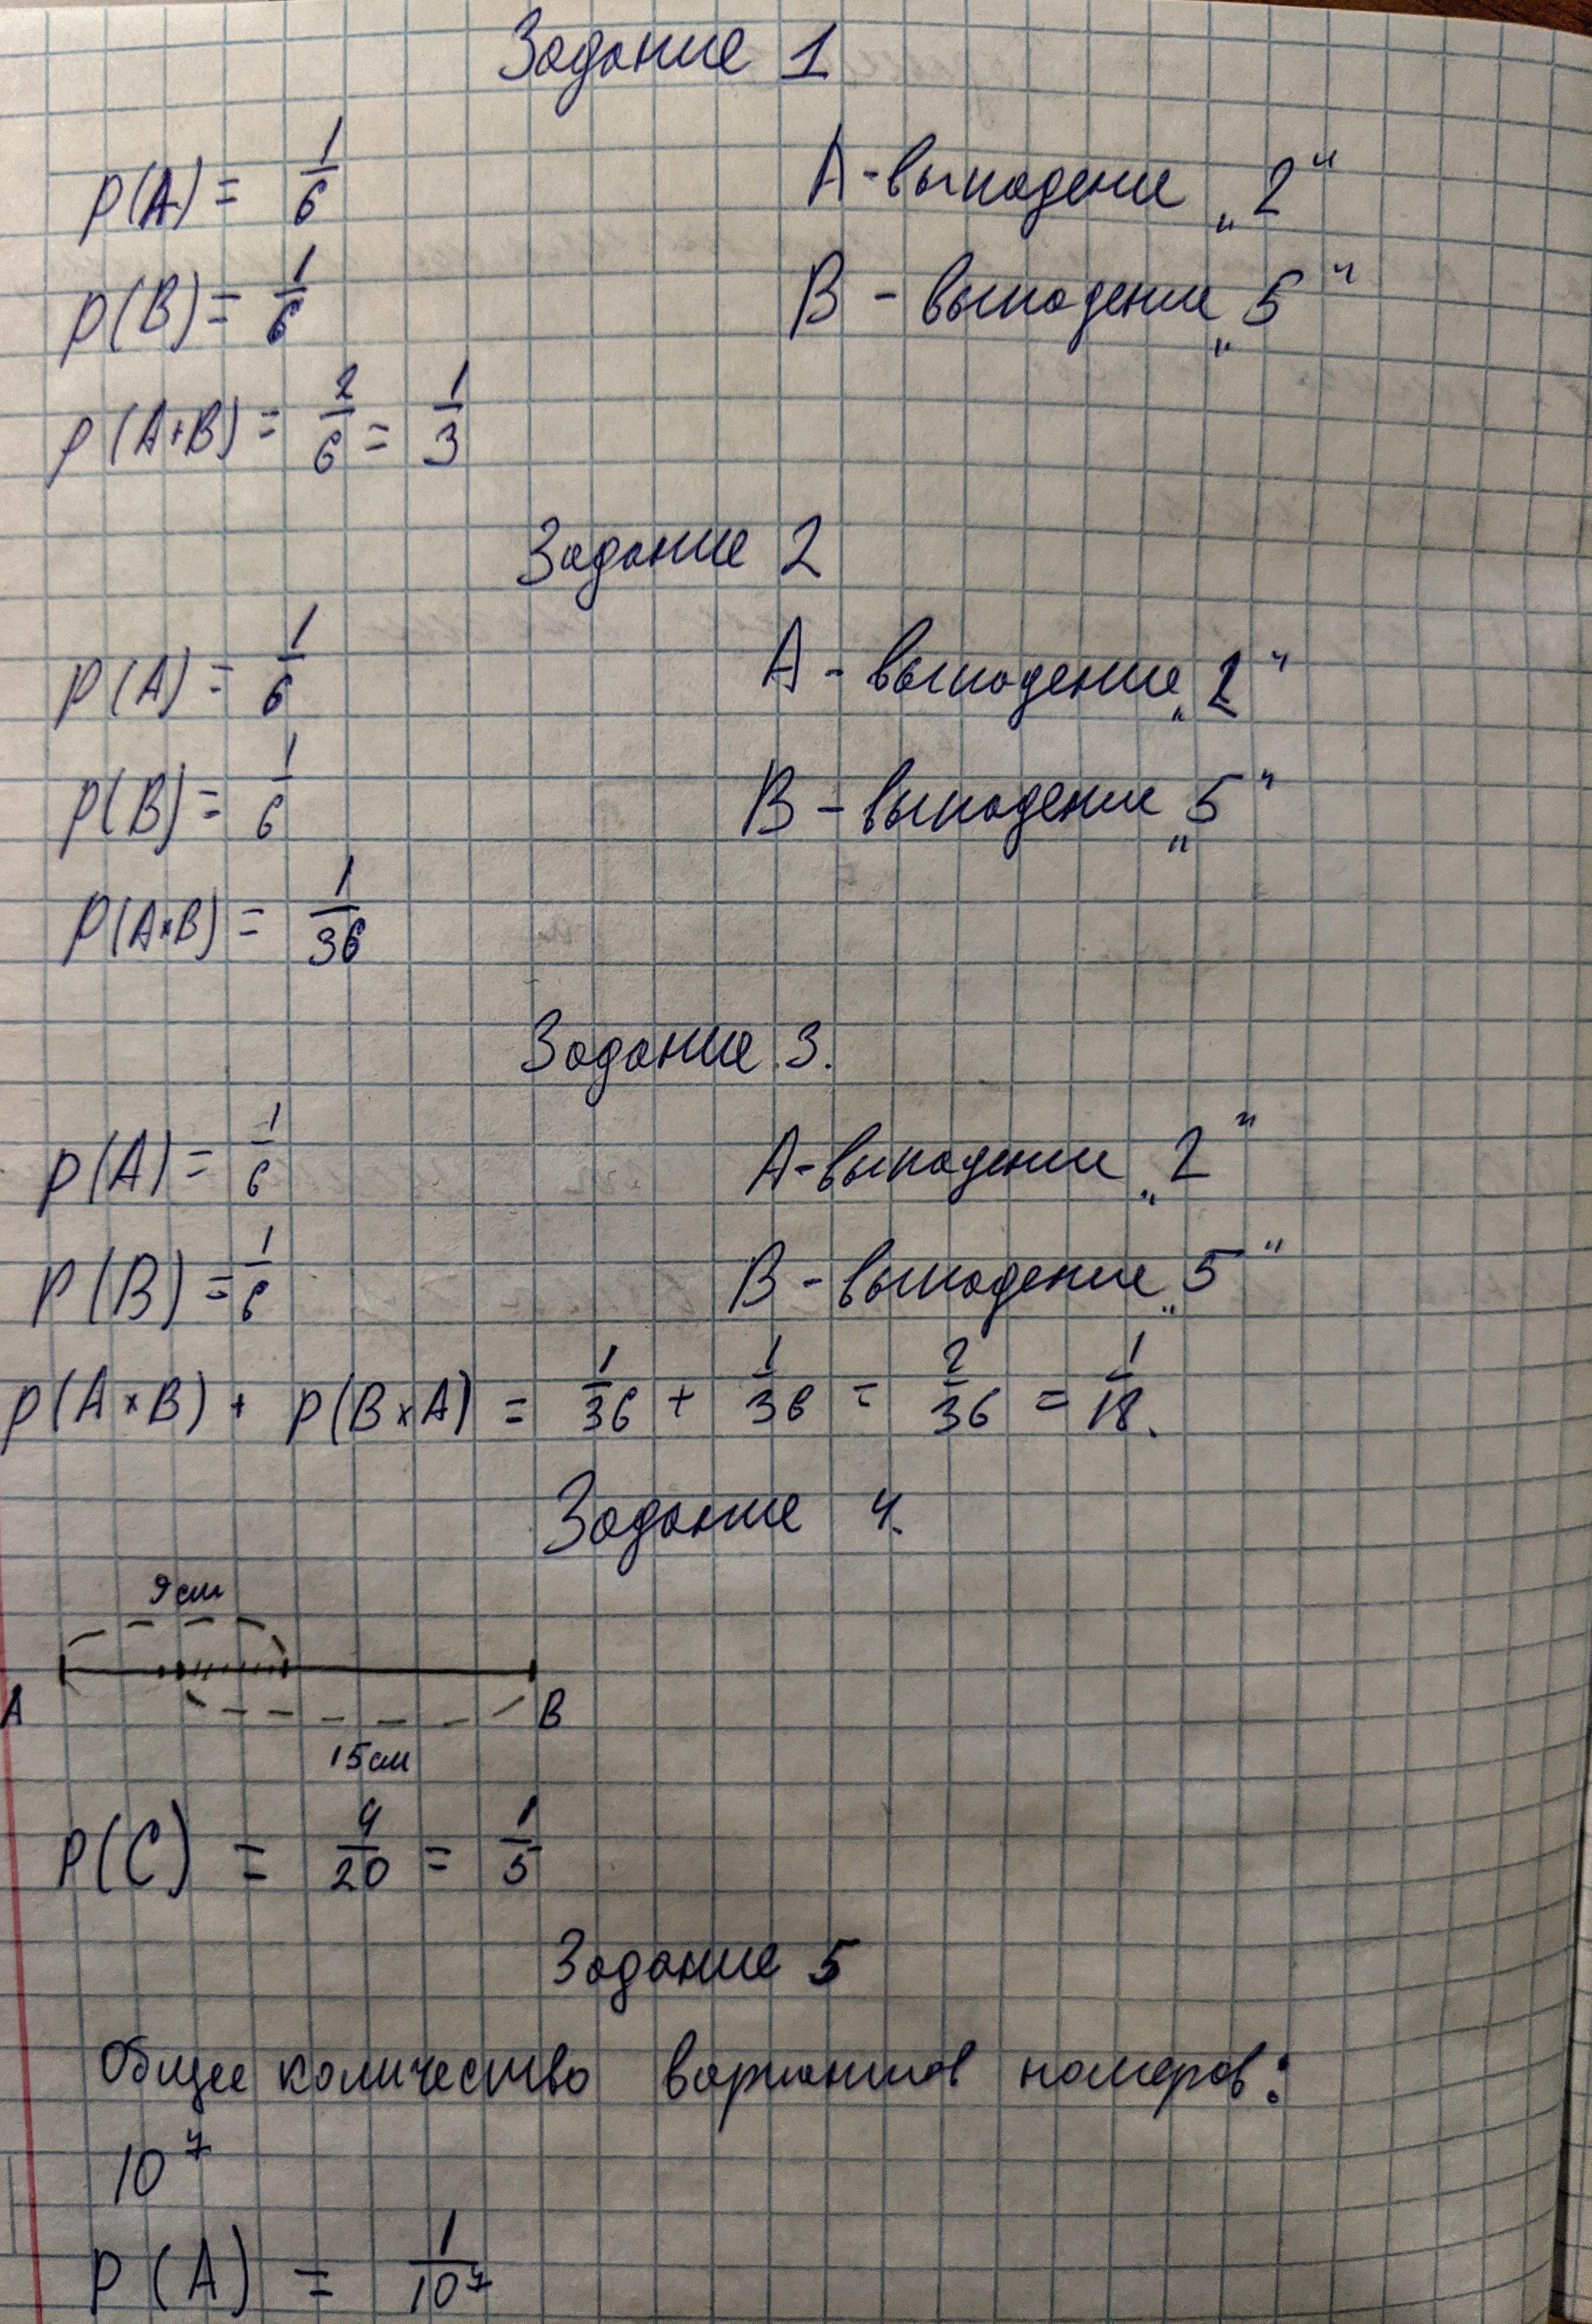 Задание 1
P(A) = 1/6 A - выпадение „2“
P(B) = 1/6 B - выпадение „5“
P(A+B) = 2/6 = 1/3
Задание 2
P(A) = 1/6 A - выпадение „2“
P(B) = 1/6 B - выпадение „5“
P(A×B) = 1/36
Задание 3.
P(A) = 1/6 A - выпадение „2“
P(B) = 1/6 B - выпадение „5“
P(A×B) + P(B×A) = 1/36 + 1/36 = 2/36 = 1/18.
Задание 4.
9 см
A B
15 см
P(C) = 4/20 = 1/5
Задание 5
Общее количество вариантов номеров:
10⁷
P(A) = 1/10⁷